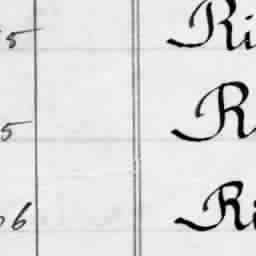 5 Ri
5 R
6 Ri